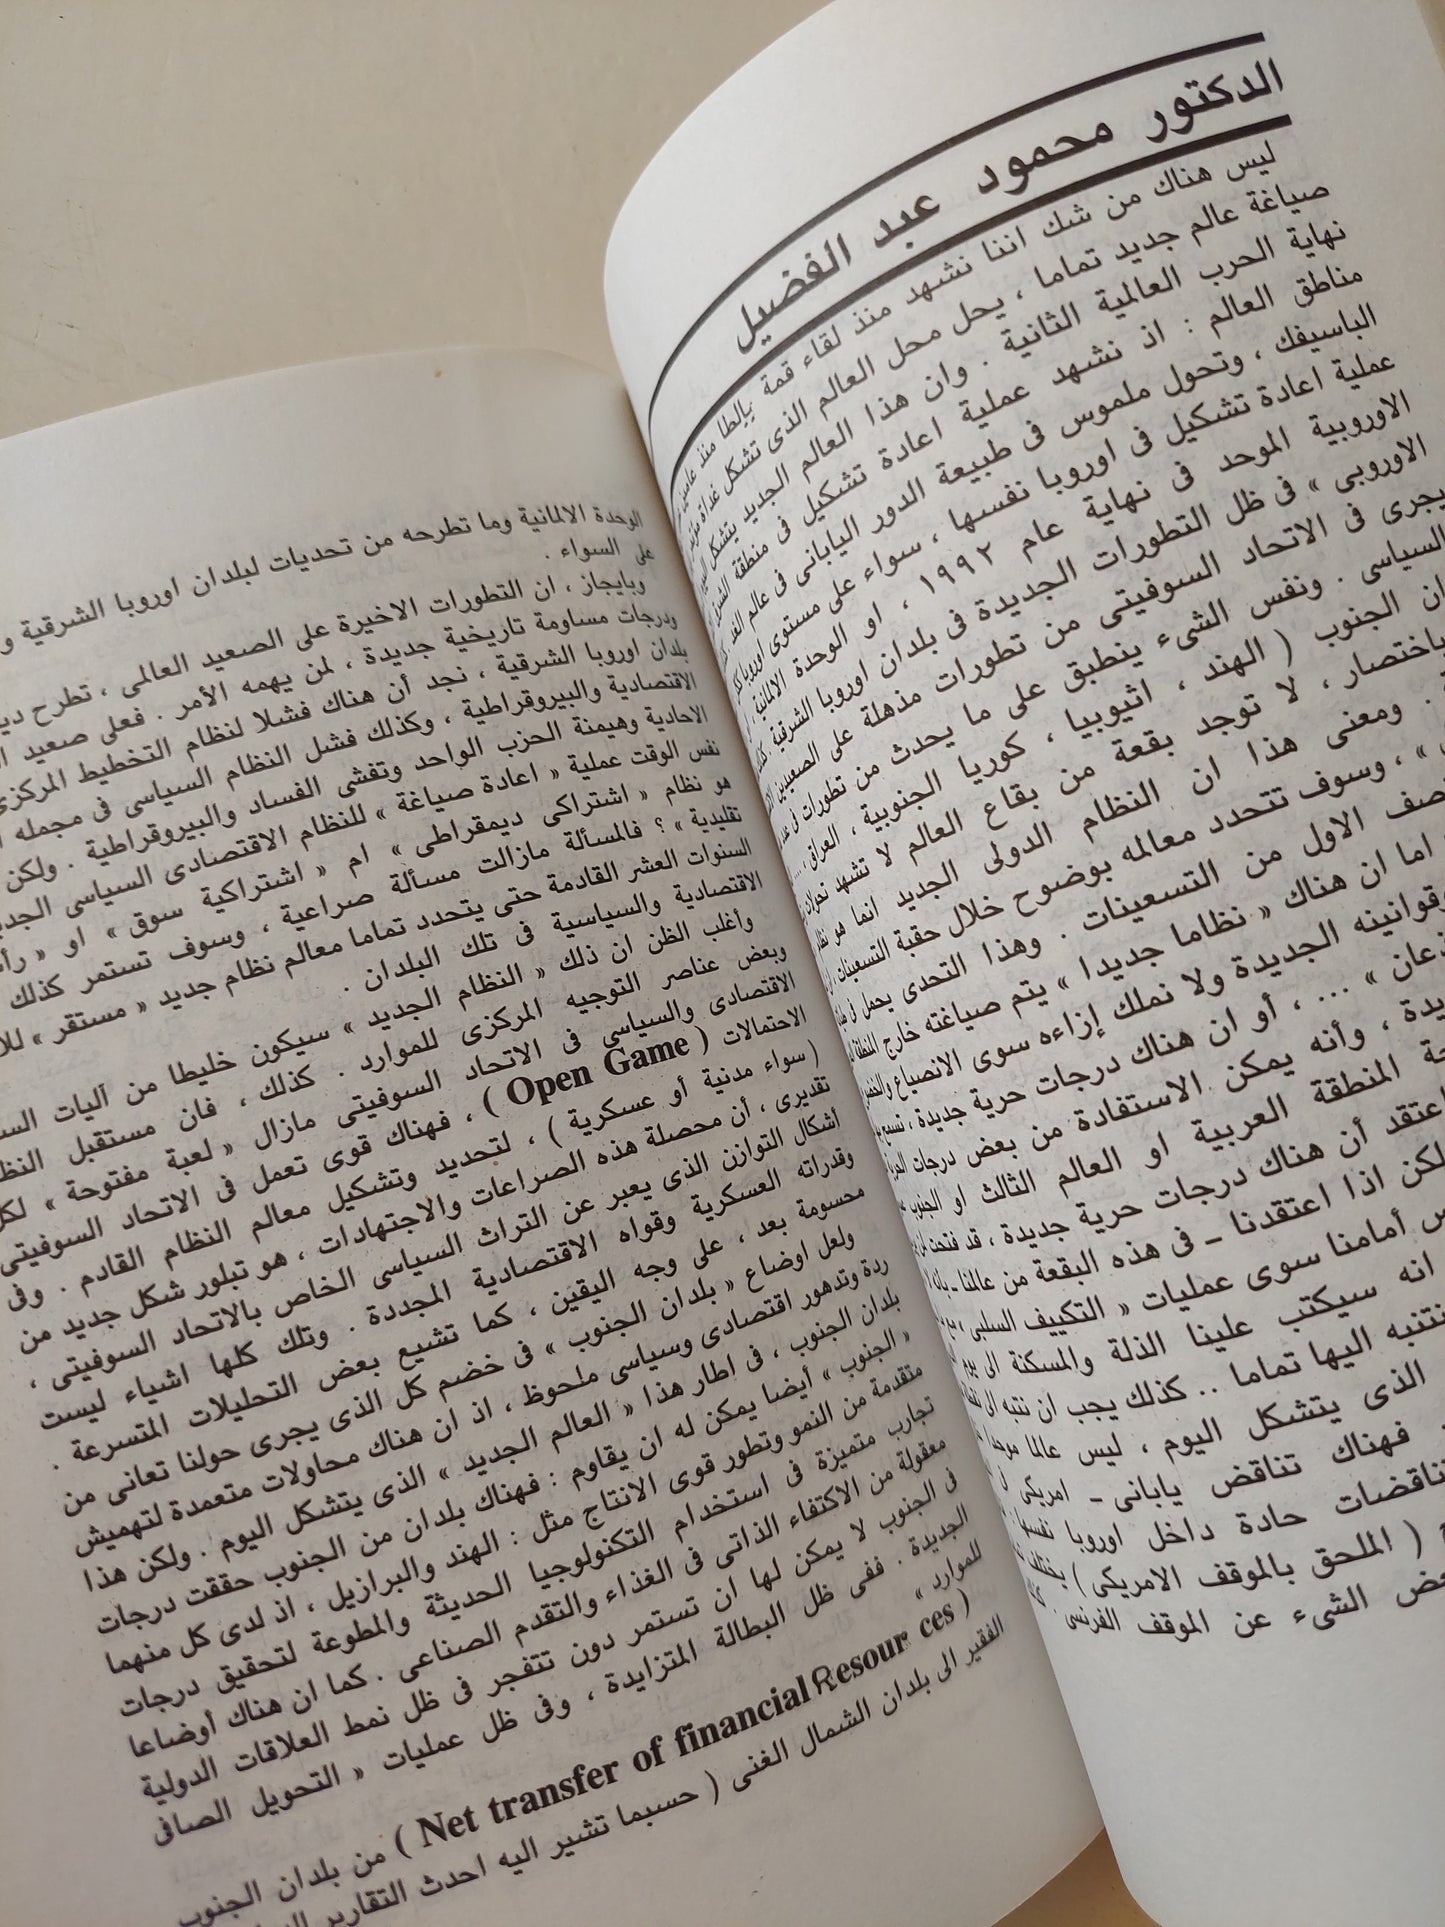 الدكتور محمود عبد الفضيل
ليس هناك من شك اننا نشهد منذ لقاء قمة
صياغة عالم جديد تماما ، يحل محل العالم الذى تشكل غداة
نهاية الحرب العالمية الثانية . وان هذا العالم الجديد يتشكل
مناطق العالم : اذ نشهد عملية اعادة تشكيل فى منطقة
الباسيفك ، وتحول ملموس فى طبيعة الدور اليابانى فى عالم الغد
عملية اعادة تشكيل فى اوروبا نفسها ، سواء على مستوى اوروبا
الاوروبية الموحد فى نهاية عام ١٩٩٢ ، او الوحدة الالمانية
الاوروبى » فى ظل التطورات الجديدة فى بلدان اوروبا الشرقية
يجرى فى الاتحاد السوفيتى من تطورات مذهلة على الصعيدين
السياسى . ونفس الشىء ينطبق على ما يحدث من تطورات فى
ان الجنوب ( الهند ، اثيوبيا ، كوريا الجنوبية ، العراق ....
باختصار ، لا توجد بقعة من بقاع العالم لا تشهد
. ومعنى هذا ان النظام الدولى الجديد انما هو
» ، وسوف تتحدد معالمه بوضوح خلال حقبة التسعينات
صف الاول من التسعينات . وهذا التحدى يحمل فى
اما ان هناك « نظاما جديدا » يتم صياغته خارج المنطقة
وقوانينه الجديدة ولا نملك إزاءه سوى الانصياع
ذعان » ... ، أو ان هناك درجات حرية جديدة ،
يدة ، وأنه يمكن الاستفادة من بعض درجات
حة المنطقة العربية او العالم الثالث او الجنوب
اعتقد أن هناك درجات حرية جديدة ، قد فتحت
لكن اذا اعتقدنا ــ فى هذه البقعة من عالمنا ــ
س أمامنا سوى عمليات « التكييف السلبى
انه سيكتب علينا الذلة والمسكنة الى يوم
نتنبه اليها تماما .. كذلك يجب ان ننتبه الى
الذى يتشكل اليوم ، ليس عالما موحدا
فهناك تناقض يابانى ــ امريكى
تناقضات حادة داخل اوروبا نفسها
( الملحق بالموقف الامريكى ) يختلف
عض الشىء عن الموقف الفرنسى .
الوحدة الالمانية وما تطرحه من تحديات لبلدان اوروبا الشرقية
على السواء .
وبايجاز ، ان التطورات الاخيرة على الصعيد العالمى ، تطرح
ودرجات مساومة تاريخية جديدة ، لمن يهمه الأمر . فعلى صعيد
بلدان اوروبا الشرقية ، نجد أن هناك فشلا لنظام التخطيط المركزى
الاقتصادية والبيروقراطية ، وكذلك فشل النظام السياسى فى مجمله
الاحادية وهيمنة الحزب الواحد وتفشى الفساد والبيروقراطية . ولكن
نفس الوقت عملية « اعادة صياغة » للنظام الاقتصادى السياسى
هو نظام « اشتراكى ديمقراطى » ام « اشتراكية سوق » او «
تقليدية » ؟ فالمسألة مازالت مسألة صراعية ، وسوف تستمر كذلك
السنوات العشر القادمة حتى يتحدد تماما معالم نظام جديد « مستقر »
الاقتصادية والسياسية فى تلك البلدان .
وأغلب الظن ان ذلك « النظام الجديد » سيكون خليطا من آليات
وبعض عناصر التوجيه المركزى للموارد . كذلك ، فان مستقبل
الاقتصادى والسياسى فى الاتحاد السوفيتى مازال « لعبة مفتوحة »
الاحتمالات ( Open Game ) ، فهناك قوى تعمل فى الاتحاد السوفيتى
( سواء مدنية أو عسكرية ) ، لتحديد وتشكيل معالم النظام القادم . وفى
تقديرى ، أن محصلة هذه الصراعات والاجتهادات ، هو تبلور شكل جديد من
أشكال التوازن الذى يعبر عن التراث السياسى الخاص بالاتحاد السوفيتى ،
وقدراته العسكرية وقواه الاقتصادية المجددة . وتلك كلها اشياء ليست
محسومة بعد ، على وجه اليقين ، كما تشيع بعض التحليلات المتسرعة .
ولعل اوضاع « بلدان الجنوب » فى خضم كل الذى يجرى حولنا تعانى من
ردة وتدهور اقتصادى وسياسى ملحوظ ، اذ ان هناك محاولات متعمدة لتهميش
بلدان الجنوب ، فى اطار هذا « العالم الجديد » الذى يتشكل اليوم . ولكن هذا
« الجنوب » أيضا يمكن له ان يقاوم : فهناك بلدان من الجنوب حققت درجات
متقدمة من النمو وتطور قوى الانتاج مثل : الهند والبرازيل ، اذ لدى كل منهما
تجارب متميزة فى استخدام التكنولوجيا الحديثة والمطوعة لتحقيق درجات
معقولة من الاكتفاء الذاتى فى الغذاء والتقدم الصناعى . كما ان هناك أوضاعا
فى الجنوب لا يمكن لها ان تستمر دون تتفجر فى ظل نمط العلاقات الدولية
الجديدة . ففى ظل البطالة المتزايدة ، وفى ظل عمليات « التحويل الصافى
للموارد »
( Net transfer of financial Resour ces ) من بلدان الجنوب
الفقير الى بلدان الشمال الغنى ( حسبما تشير اليه احدث التقارير